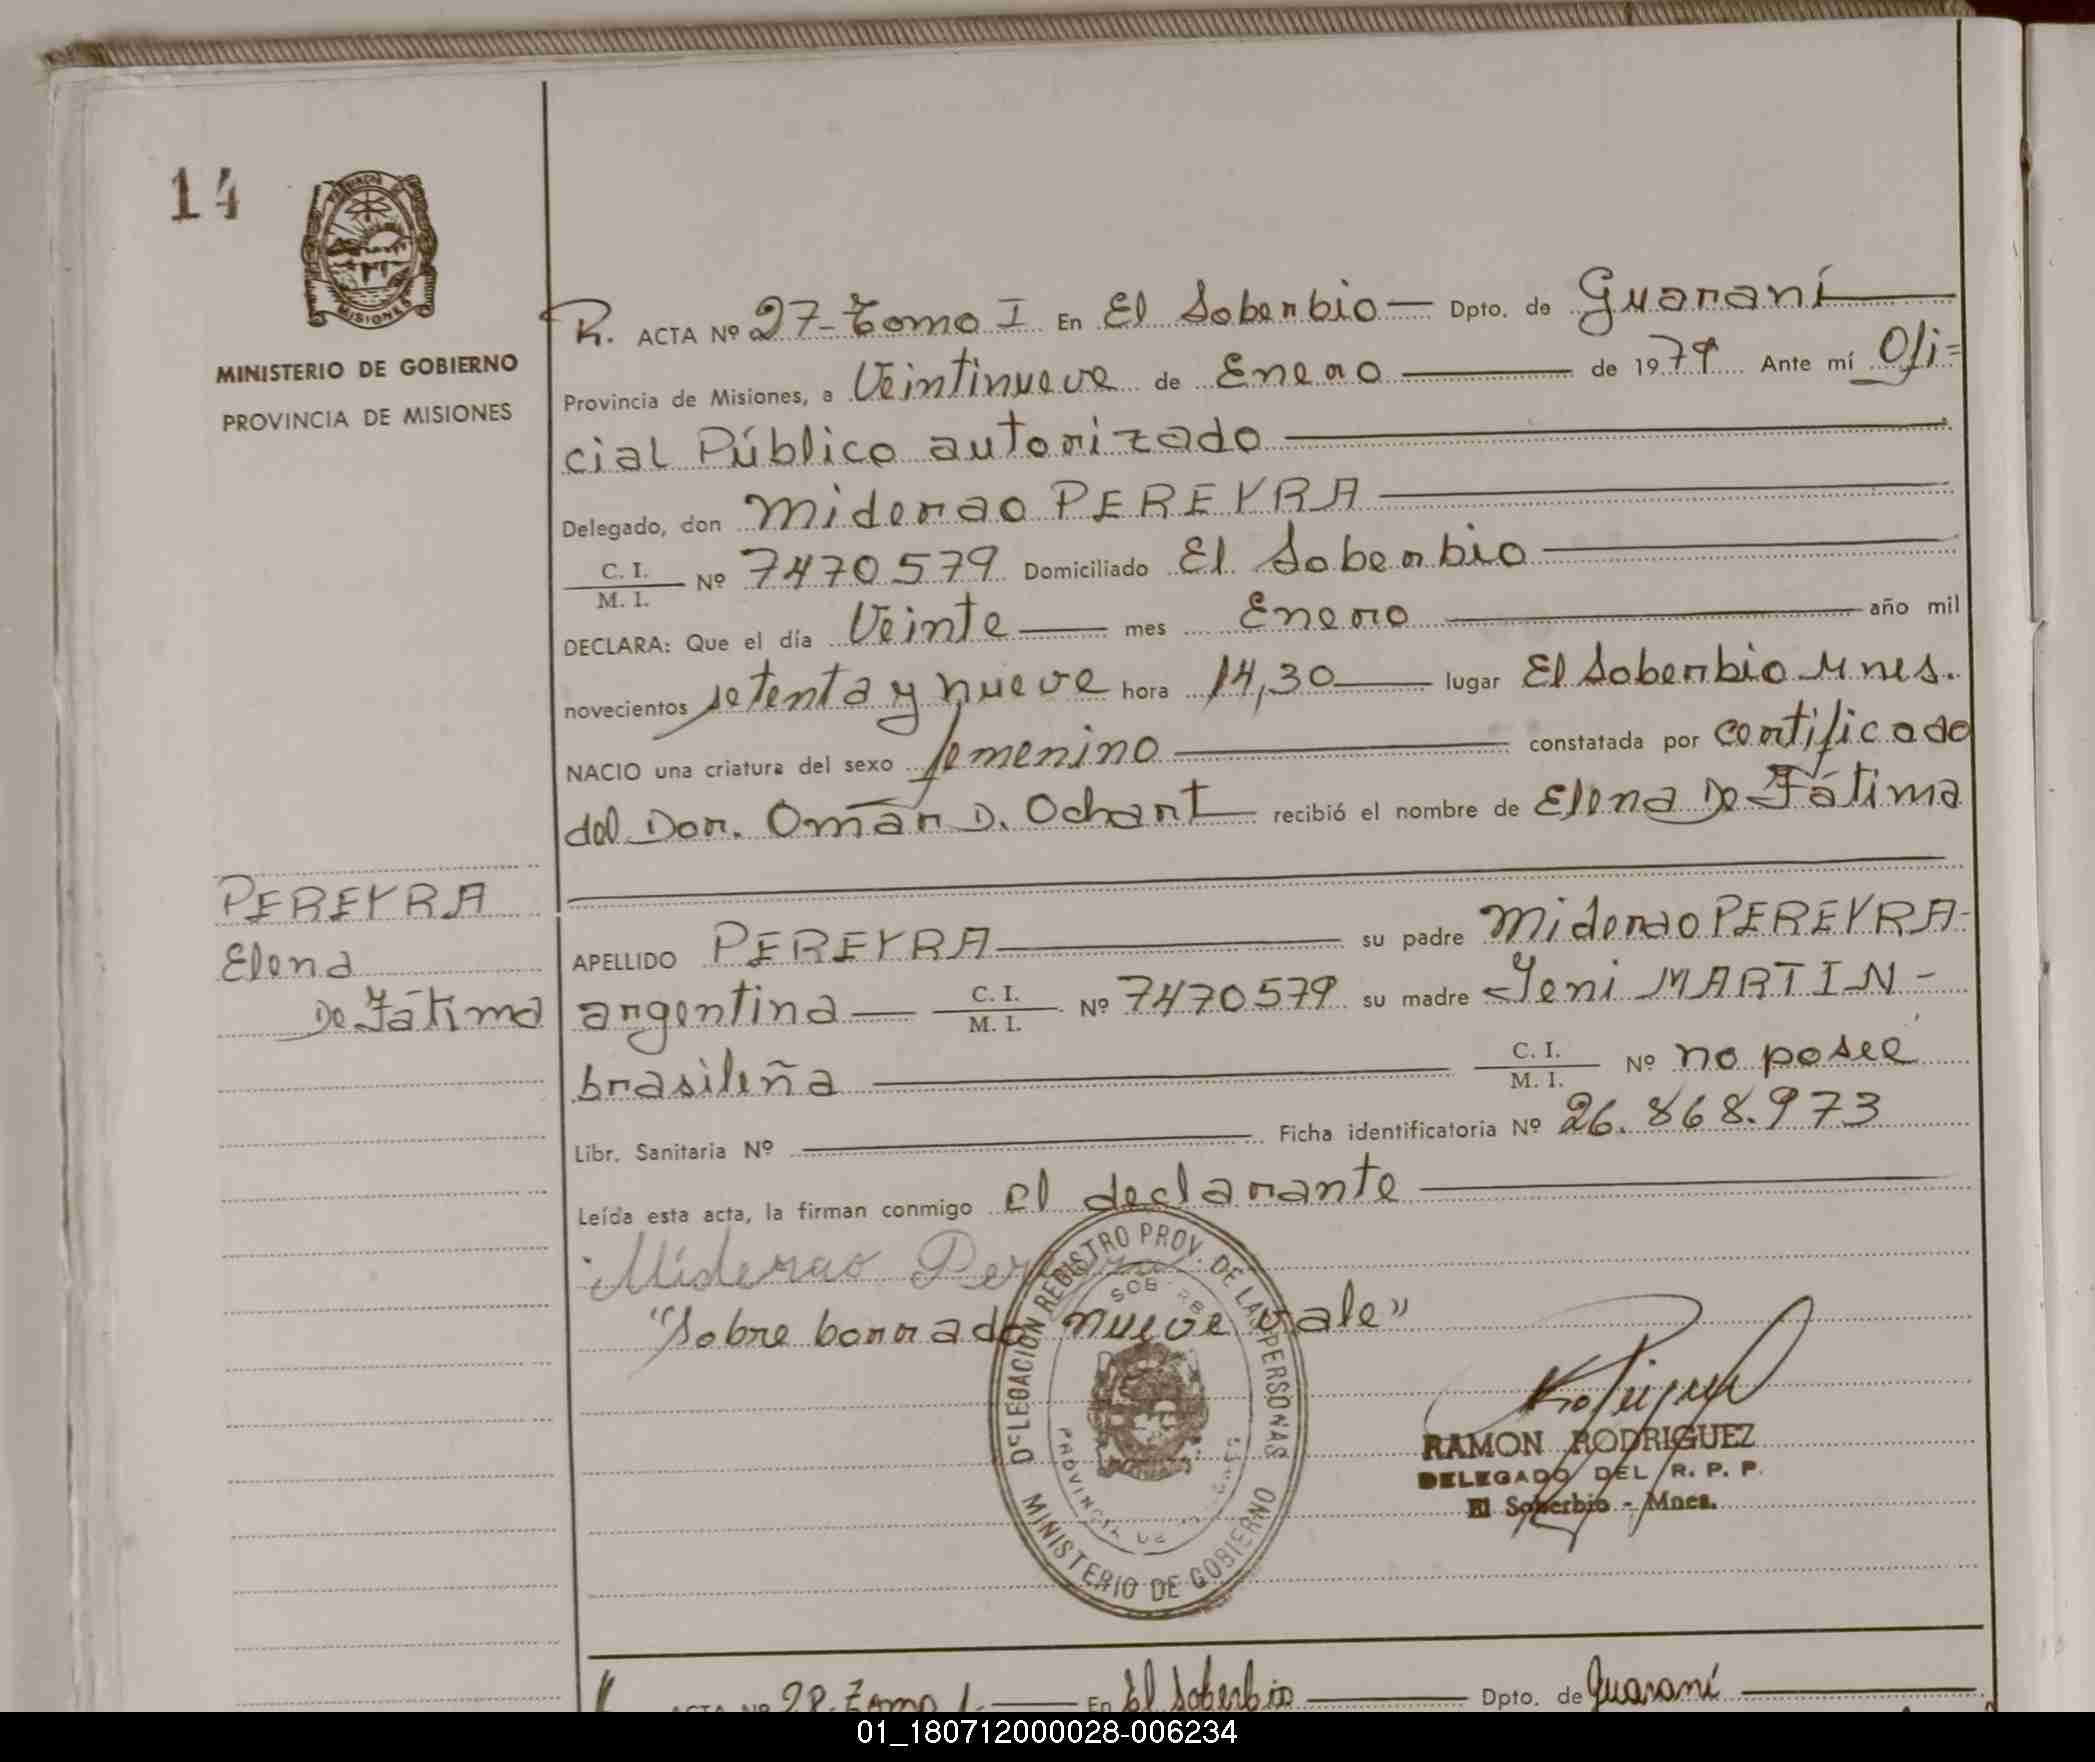 14
MISIONES
MINISTERIO DE GOBIERNO
PROVINCIA DE MISIONES
R. ACTA Nº 27-Tomo I En El Soberbio — Dpto. de Guaraní
Provincia de Misiones, a Veintinueve de Enero de 1979 Ante mí Ofi=
cial Público autorizado
Delegado, don Miderao PEREYRA
C. I. / M. I. Nº 7470579 Domiciliado El Soberbio
DECLARA: Que el día Veinte mes Enero año mil
novecientos setenta y nueve hora 14,30 lugar El Soberbio Mnes.
NACIO una criatura del sexo femenino constatada por certificado
del Dor. Omar D. Ochart recibió el nombre de Elena De Fátima
PEREYRA
Elena
De Fátima
APELLIDO PEREYRA su padre Miderao PEREYRA-
argentina — C. I. / M. I. Nº 7470579 su madre Jeni MARTIN -
brasileña C. I. / M. I. Nº no posee
Libr. Sanitaria Nº Ficha identificatoria Nº 26.868.973
Leída esta acta, la firman conmigo el declarante
Miderao
"Sobre borrado nueve vale"
DELEGACION REGISTRO PROV. DE LAS PERSONAS
MINISTERIO DE GOBIERNO
RAMON RODRIGUEZ
DELEGADO DEL R. P. P.
El Soberbio - Mnes.
ACTA Nº 28-Tomo I.— En El Soberbio Dpto. de Guaraní
01_180712000028-006234